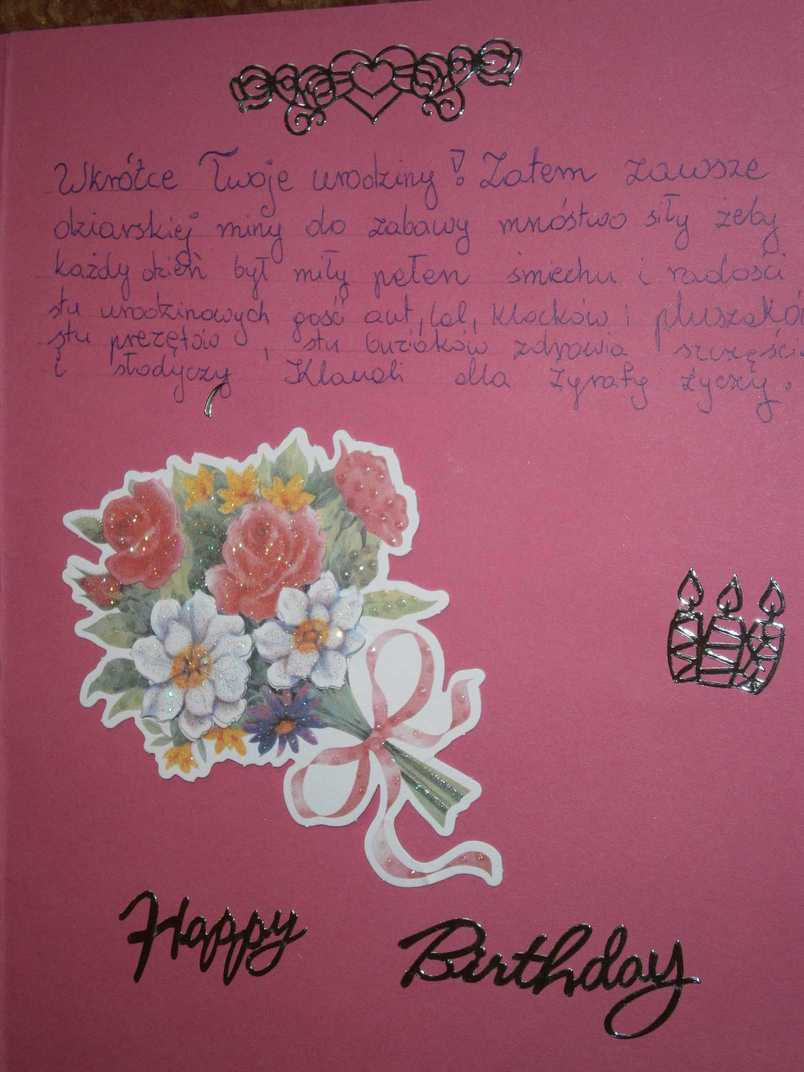 Wkrótce Twoje urodziny! Zatem zawsze
dziarskiej miny do zabawy mnóstwo siły żeby
każdy dzień był miły pełen śmiechu i radości
stu urodzinowych gości aut, lal, klocków i pluszaków
stu prezętów, stu buziaków zdrowia szczęścia
i słodyczy Klaudii dla Żyrafy życzy.
Happy Birthday